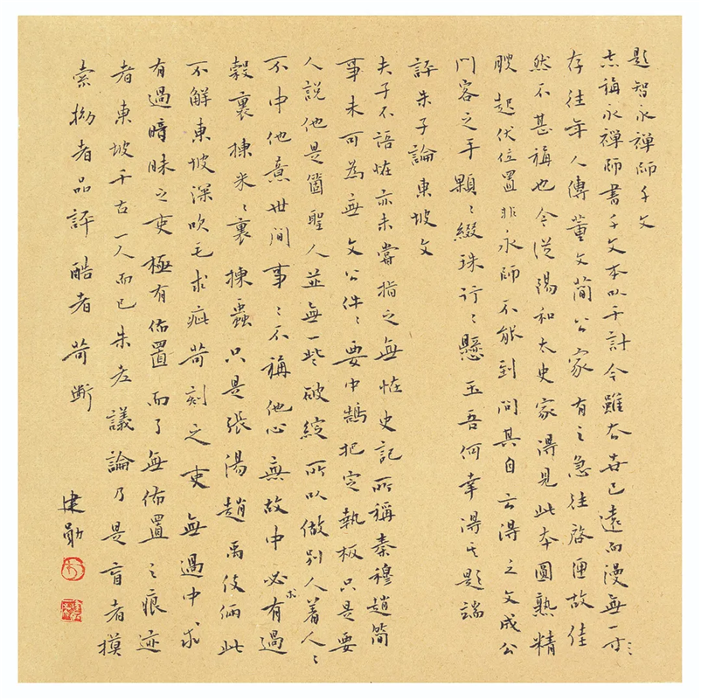 題智永禪師千文
志稱永禪師書千文本以千計今雖去世已遠而漫無一
存往年人傳董文簡公家有之急往啓匣故佳
然不甚稱也今從陽和太史家得見此本圓熟精
腴起伏位置非永師不能到問其自云得之文成公
門客之手顆〻綴珠行〻懸玉吾何幸得其題端
評朱子論東坡文
夫子不語怪亦未嘗指之無怪史記所稱秦穆趙簡
事未可為無文公件〻要中鵠把定執板只是要
人說他是箇聖人並無一些破綻所以做別人着人〻
不中他意世間事〻不稱他心無故中必求有過
穀裏揀米〻裏揀蟲只是張湯趙禹伎倆此
不解東坡深吹毛求疵苛刻之吏無過中求
有過暗昧之吏極有佈置而了無佈置〻痕迹
者東坡千古一人而已朱老議論乃是盲者摸
索拗者品評酷者苛斷
建勛